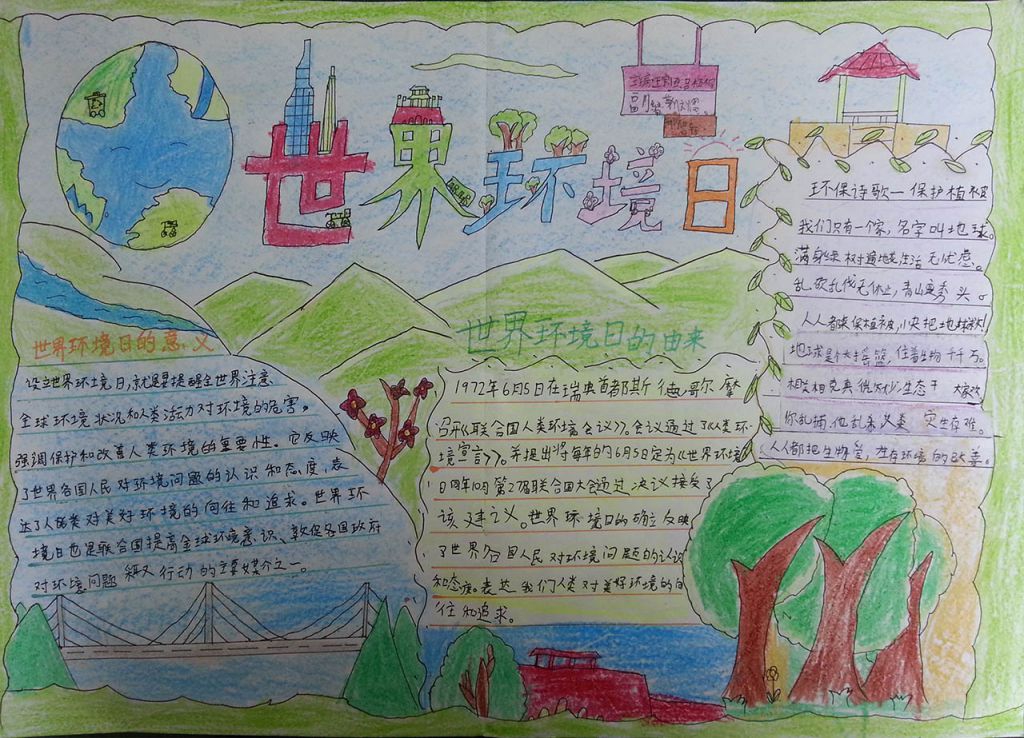 世界环境日
世界环境日的意义
设立世界环境日,就是要提醒全世界注意
全球环境状况和人类活力对环境的危害。
强调保护和改善人类环境的重要性。它反映
了世界各国人民对环境问题的认识和态度,表
达了人类对美好环境的向往和追求。世界环
境日也是联合国提高全球环境意识、敦促各国政府
对环境问题 行动的主要媒介之一。
世界环境日的由来
1972年6月5日在瑞典首都斯德哥尔摩
召开《联合国人类环境会议》。会议通过了《人类环
境宣言》。并提出将每年的6月5日定为《世界环境
日同年10月第27届联合国大会通过决议接受了
该建议。世界环境日的确立反映
了世界各国人民对环境问题的认识
和态度。表达我们人类对美好环境的向
往和追求。
环保诗歌一保护植被
我们只有一个家,名字叫地球。
满身绿树遍地花生活无忧愁。
乱砍乱伐无休止,青山变秃头。
人人都来保植被,
地球是个大摇篮,住着生物千千万。
相生相克 生态平 大家欢
你乱捕,他乱杀 灾生存难。
人人都把生物爱,生存环境的改善。